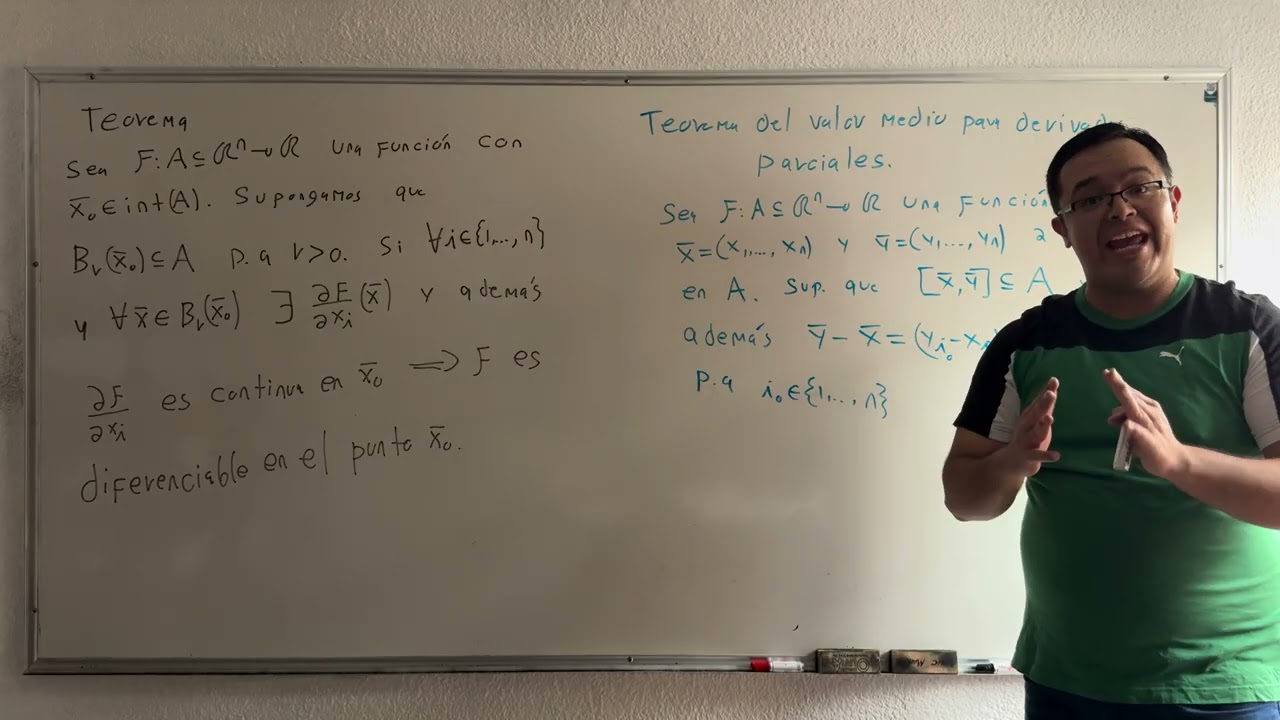 Teorema
Sea F: A ⊆ ℝⁿ → ℝ una función con
x̄₀ ∈ int(A). Supongamos que
Bᵣ(x̄₀) ⊆ A p.a r > 0. Si ∀i ∈ {1,..., n}
y ∀x̄ ∈ Bᵣ(x̄₀) ∃ ∂F/∂xᵢ (x̄) y además
∂F/∂xᵢ es continua en x̄₀ ⟹ F es
diferenciable en el punto x̄₀.
Teorema del valor medio para
parciales.
Sea F: A ⊆ ℝⁿ → ℝ una función
x̄ = (x₁,..., xₙ) y ȳ = (y₁,..., yₙ) 2
en A. Sup. que [x̄, ȳ] ⊆ A
además ȳ - x̄ = (y_{i₀} - x
p.a i₀ ∈ {1,..., n}